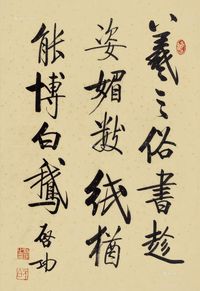 羲之俗書趁
姿媚數紙猶
能博白鵝 啓功